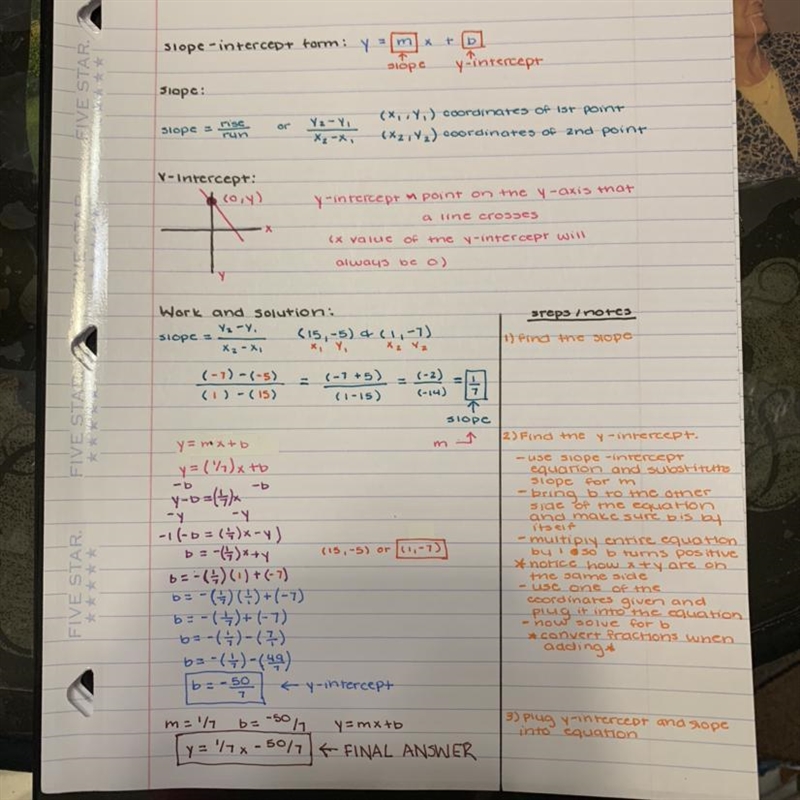 slope-intercept form: y = m x + b
slope y-intercept
slope:
slope = rise/run or Y₂-Y₁/X₂-X₁ (X₁,Y₁) coordinates of 1st point
(X₂,Y₂) coordinates of 2nd point
Y-Intercept:
(0,y)
x
y
y-intercept → point on the y-axis that
a line crosses
(x value of the y-intercept will
always be 0)
Work and solution:
slope = Y₂-Y₁/X₂-X₁ (15,-5) & (1,-7)
X₁ Y₁ X₂ Y₂
(-7)-(-5)/(1)-(15) = (-7+5)/(1-15) = (-2)/(-14) = 1/7
slope
m
y=mx+b
y=(1/7)x+b
-b -b
y-b=(1/7)x
-y -y
-1(-b=(1/7)x-y)
b=-(1/7)x+y (15,-5) or (1,-7)
b=-(1/7)(1)+(-7)
b=-(1/7)(1/1)+(-7)
b=-(1/7)+(-7)
b=-(1/7)-(7/1)
b=-(1/7)-(49/7)
b=-50/7 ← y-intercept
m=1/7 b=-50/7 y=mx+b
y=1/7x-50/7 ← FINAL ANSWER
steps/notes
1) Find the slope
2) Find the y-intercept.
-use slope-intercept
equation and substitute
slope for m
-bring b to the other
side of the equation
and make sure b is by
itself
-multiply entire equation
by 1 so b turns positive
*notice how x+y are on
the same side
-use one of the
coordinates given and
plug it into the equation
-now solve for b
*convert fractions when
adding*
3) Plug y-intercept and slope
into equation
FIVE STAR.
FIVE STAR.
FIVE STAR.